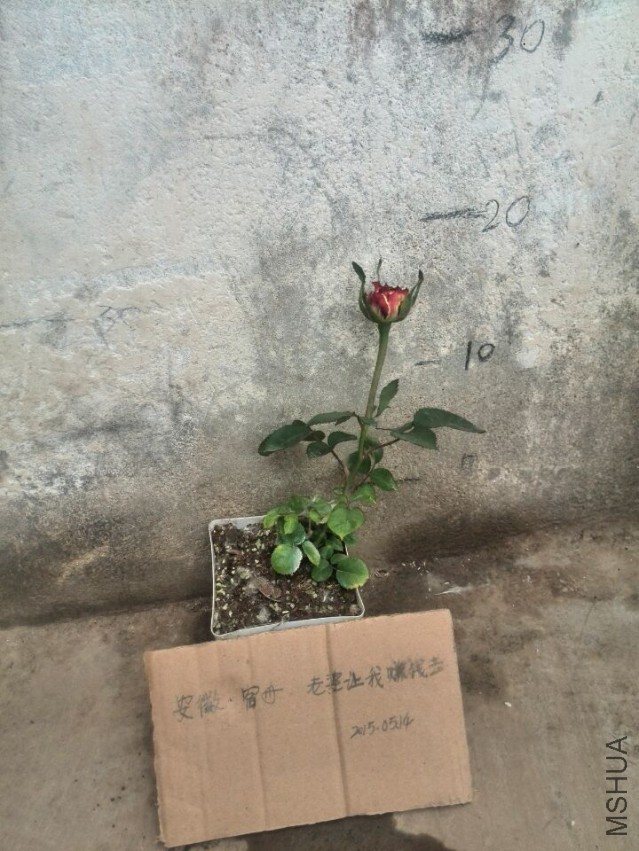 30
20
10
0
安徽·留丹 老婆让我赚钱去
2015.0514
MSHUA